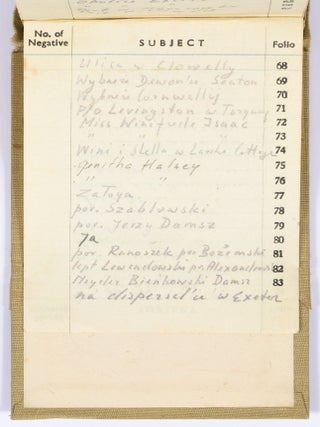 No. of Negative SUBJECT Folio
Ulica w Clowelly 68
Wybrzeże Devon'u Seaton 69
Wybrzeże Cornwally 70
P/o Levingston w Torquay 71
Miss Winifrede Isaac 72
" " " 73
Wini i Stella w Lanke Cottage 74
Gnitha Halsey 75
" " 76
Załoga 77
por. Szabłowski 78
por. Jerzy Damsz 79
Ja 80
por. Ranoszek por Bożemski 81
kpt Lewandowski pr. Alexandrowicz 82
Meyder Bieńkowski Damsz 83
na dispersel'u w Exeter